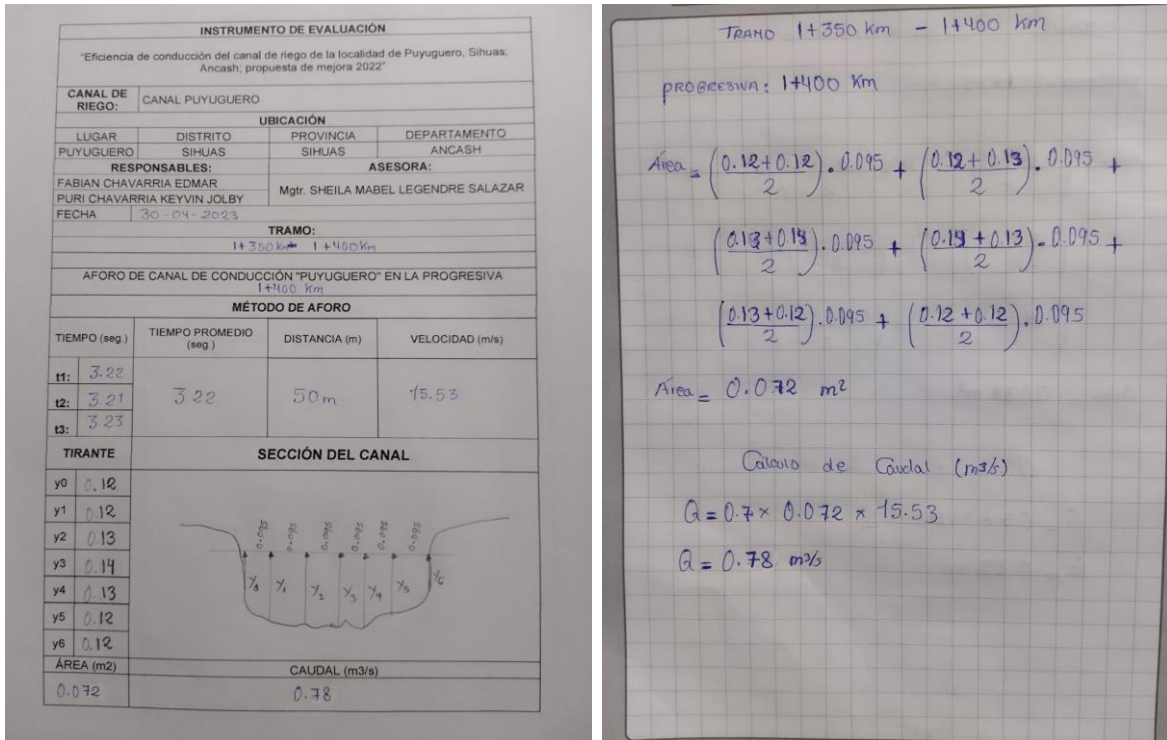 INSTRUMENTO DE EVALUACIÓN
"Eficiencia de conducción del canal de riego de la localidad de Puyuguero, Sihuas;
Ancash; propuesta de mejora 2022"
CANAL DE RIEGO: CANAL PUYUGUERO
UBICACIÓN
LUGAR DISTRITO PROVINCIA DEPARTAMENTO
PUYUGUERO SIHUAS SIHUAS ANCASH
RESPONSABLES: ASESORA:
FABIAN CHAVARRIA EDMAR
PURI CHAVARRIA KEYVIN JOLBY
Mgtr. SHEILA MABEL LEGENDRE SALAZAR
FECHA 30-04-2023
TRAMO:
1+350 km 1+400 Km
AFORO DE CANAL DE CONDUCCIÓN "PUYUGUERO" EN LA PROGRESIVA
1+400 Km
MÉTODO DE AFORO
TIEMPO (seg.) TIEMPO PROMEDIO (seg.) DISTANCIA (m) VELOCIDAD (m/s)
t1: 3.22
t2: 3.21 3.22 50m 15.53
t3: 3.23
TIRANTE SECCIÓN DEL CANAL
y0 0.12
y1 0.12
y2 0.13
y3 0.14
y4 0.13
y5 0.12
y6 0.12
0.095 0.095 0.095 0.095 0.095 0.095
y0 y1 y2 y3 y4 y5 y6
ÁREA (m2) CAUDAL (m3/s)
0.072 0.78
TRAMO 1+350 Km - 1+400 Km
PROGRESIVA: 1+400 Km
Área = (0.12+0.12/2).0.095 + (0.12+0.13/2).0.095 +
(0.13+0.14/2).0.095 + (0.14+0.13/2).0.095 +
(0.13+0.12/2).0.095 + (0.12+0.12/2).0.095
Área = 0.072 m2
Cálculo de Caudal (m3/s)
Q = 0.7 × 0.072 × 15.53
Q = 0.78 m3/s